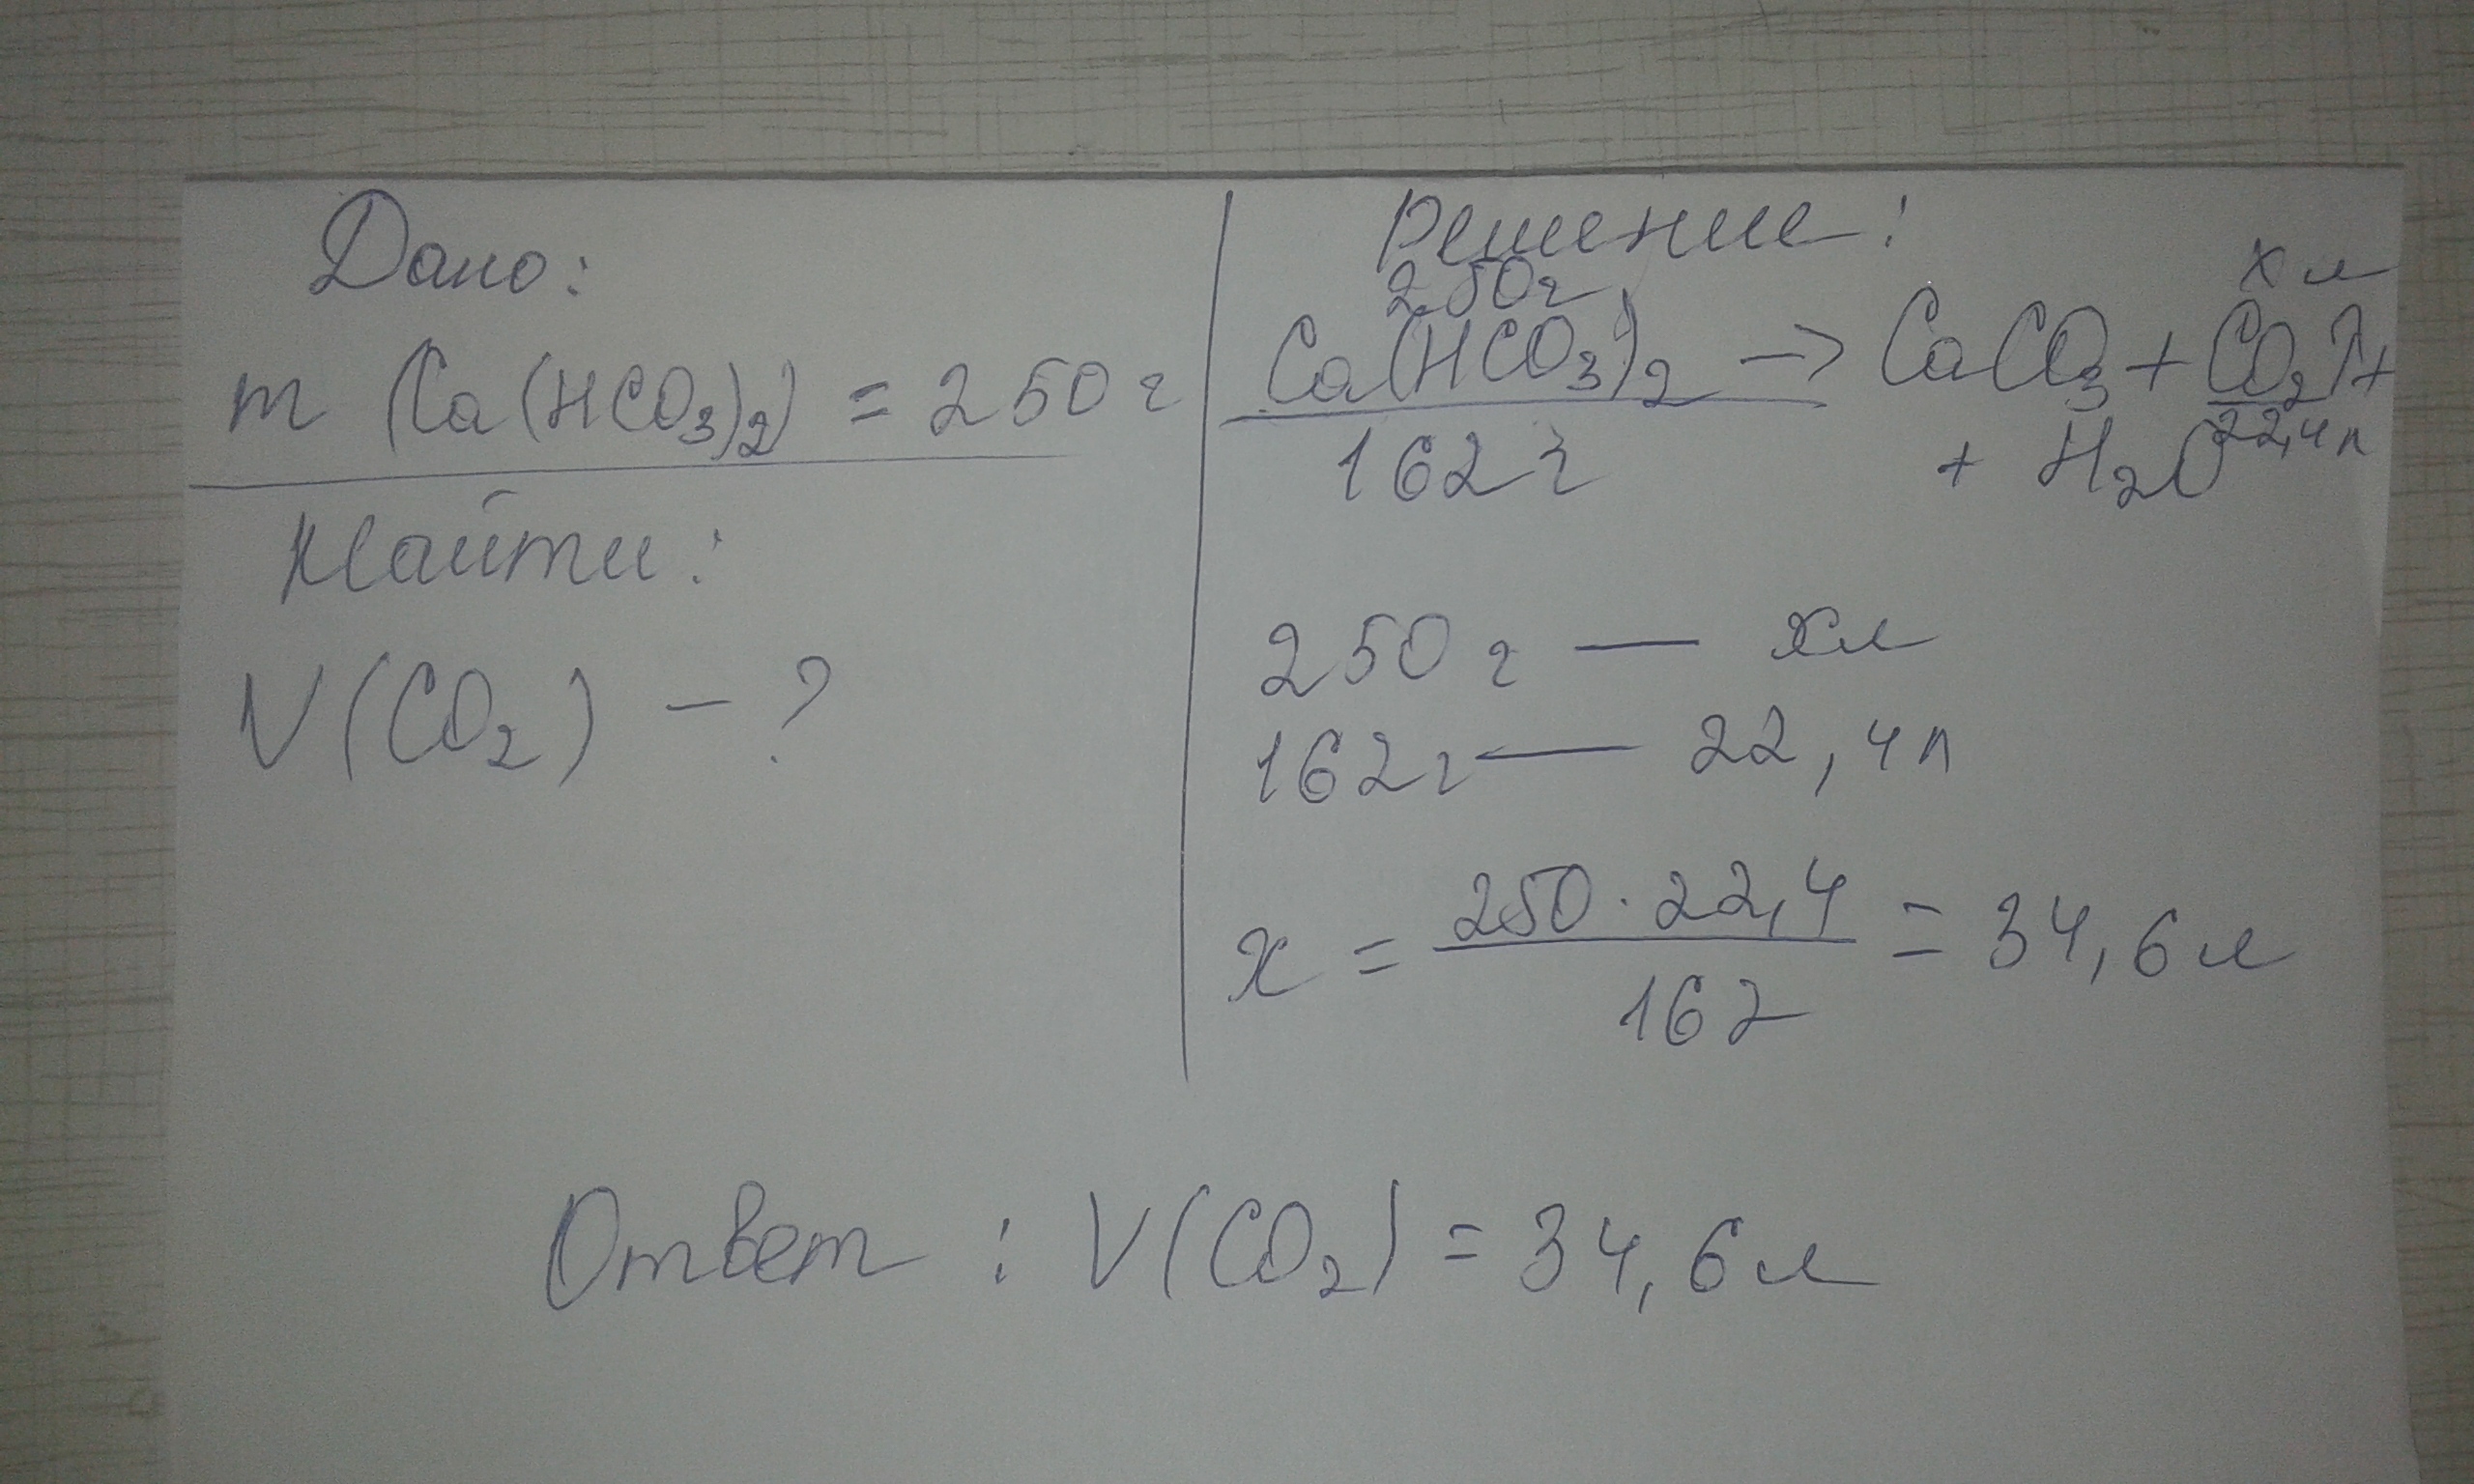 Дано:
m (Ca(HCO₃)₂) = 250 г
Найти:
V(CO₂) – ?
Решение:
250г x л
Ca(HCO₃)₂ → CaCO₃ + CO₂↑ +
162 г + H₂O 22,4 л
250 г — x л
162 г — 22,4 л
x = 250 · 22,4 / 162 = 34,6 л
Ответ : V(CO₂) = 34,6 л